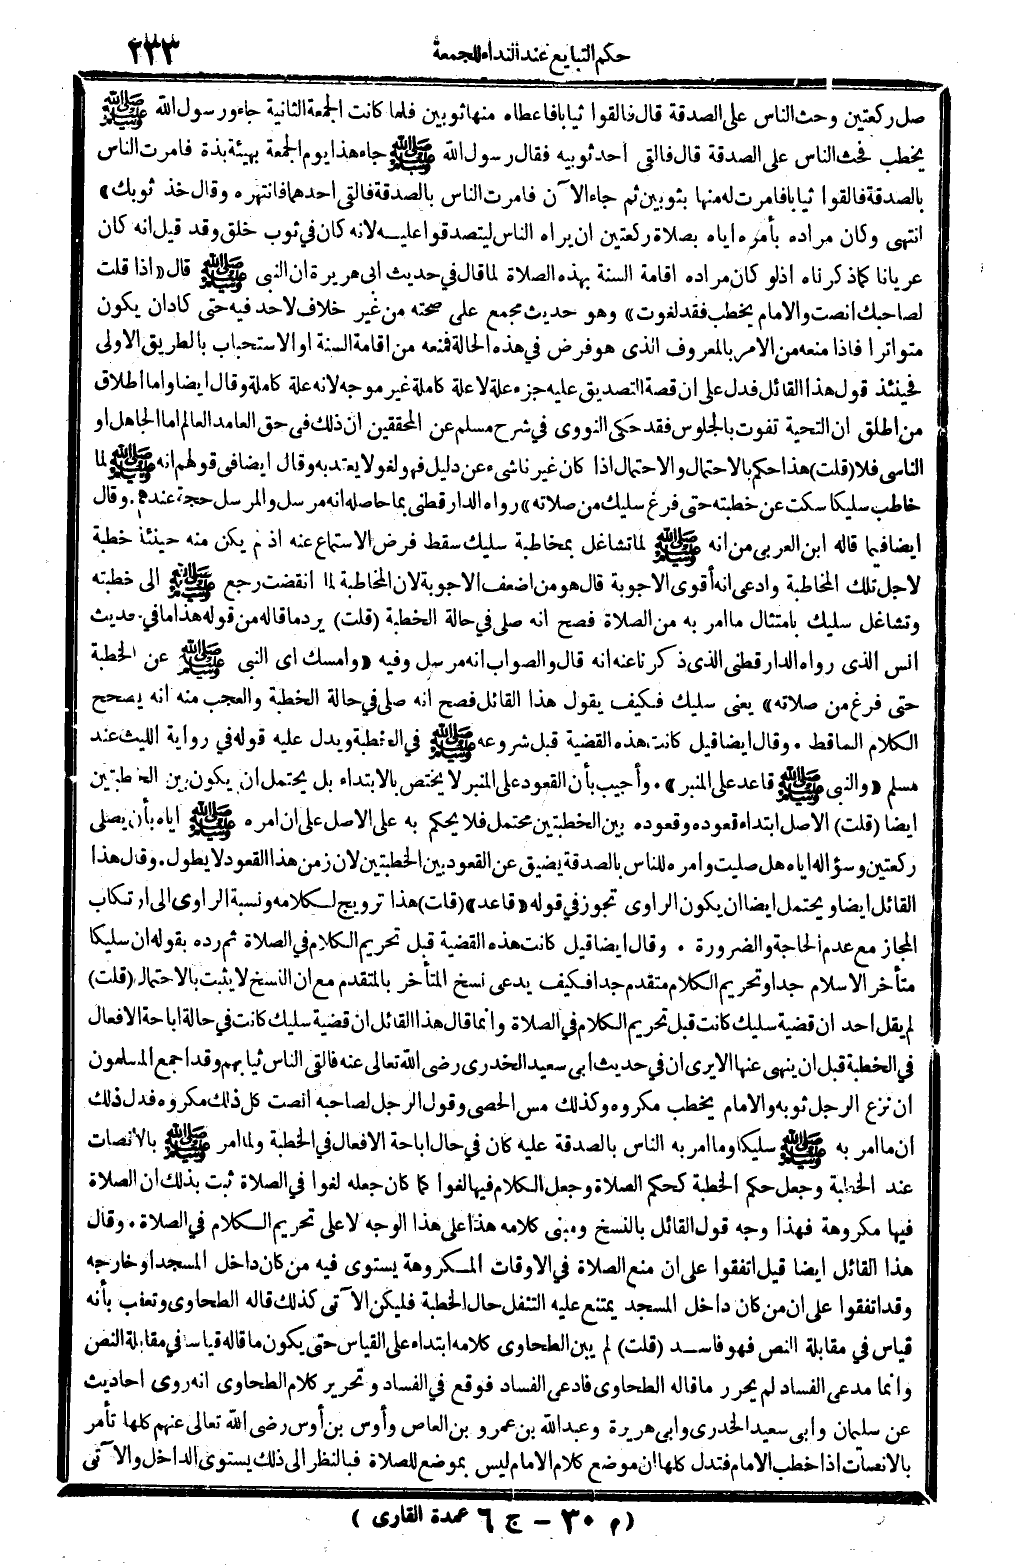 حكم التبايع عند النداء للجمعة ٢٣٣
صل ركعتين وحث الناس على الصدقة قال فالقوا ثيابا فاعطاه منها ثوبين فلما كانت الجمعة الثانية جاء ورسول الله ﷺ
يخطب فحث الناس على الصدقة قال فالقى احد ثوبيه فقال رسول الله ﷺ جاء هذا يوم الجمعة بهيئة بذة فامرت الناس
بالصدقة فالقوا ثيابا فامرت له منها بثوبين ثم جاء الآن فامرت الناس بالصدقة فالقى احدهما فانتهره وقال خذ ثوبك»
انتهى وكان مراده بأمره اياه بصلاة ركعتين ان يراه الناس ليتصدقوا عليه لانه كان في ثوب خلق وقد قيل انه كان
عريانا كما ذكرناه اذلو كان مراده اقامة السنة بهذه الصلاة لما قال في حديث ابى هريرة ان النبى ﷺ قال «اذا قلت
لصاحبك انصت والامام يخطب فقد لغوت» وهو حديث مجمع على صحته من غير خلاف لاحد فيه حتى كادان يكون
متواترا فاذا منعه من الامر بالمعروف الذى هو فرض في هذه الحالة فمنعه من اقامة السنة او الاستحباب بالطريق الاولى
فحينئذ قول هذا القائل فدل على ان قصة التصديق عليه جزء علة لا علة كاملة غير موجه لانه علة كاملة وقال ايضا واما اطلاق
من اطلق ان التحية تفوت بالجلوس فقد حكى النووى في شرح مسلم عن المحققين ان ذلك في حق العامد العالم اما الجاهل او
الناسى فلا (قلت) هذا حكم بالاحتمال والاحتمال اذا كان غير ناشىء عن دليل فهو لغو لا يعتد به وقال ايضا فى قولهم انه ﷺ لما
خاطب سليكا سكت عن خطبته حتى فرغ سليك من صلاته» رواه الدارقطنى بما حاصله انه مرسل والمرسل حجة عندهم . وقال
ايضا فيما قاله ابن العربى من انه ﷺ لما تشاغل بمخاطبة سليك سقط فرض الاستماع عنه اذ لم يكن منه حينئذ خطبة
لاجل تلك المخاطبة وادعى انه أقوى الاجوبة قال هو من اضعف الاجوبة لان المخاطبة لما انقضت رجع ﷺ الى خطبته
وتشاغل سليك بامتثال ما امر به من الصلاة فصح انه صلى في حالة الخطبة (قلت) يرد ما قاله من قوله هذا ما في حديث
انس الذى رواه الدارقطنى الذى ذكرناعنه انه قال والصواب انه مرسل وفيه «وامسك اى النبى ﷺ عن الخطبة
حتى فرغ من صلاته» يعنى سليك فكيف يقول هذا القائل فصح انه صلى في حالة الخطبة والعجب منه انه يصحح
الكلام الساقط . وقال ايضا قيل كانت هذه القضية قبل شروعه ﷺ في الخطبة ويدل عليه قوله في رواية الليث عند
مسلم «والنبى ﷺ قاعد على المنبر» . وأجيب بأن القعود على المنبر لا يختص بالابتداء بل يحتمل ان يكون بين الخطبتين
ايضا (قلت) الاصل ابتداء قعوده وقعوده بين الخطبتين محتمل فلا يحكم به على الاصل على ان امره ﷺ اياه بأن يصلى
ركعتين وسؤاله اياه هل صليت وامره للناس بالصدقة يضيق عن القعود بين الخطبتين لان زمن هذا القعود لا يطول . وقال هذا
القائل ايضا ويحتمل ايضا ان يكون الراوى تجوز في قوله «قاعد» (قلت) هذا ترويج لكلامه ونسبة الراوى الى ارتكاب
المجاز مع عدم الحاجة والضرورة . وقال ايضا قيل كانت هذه القضية قبل تحريم الكلام في الصلاة ثم رده بقوله ان سليكا
متأخر الاسلام جدا وتحريم الكلام متقدم جدا فكيف يدعى نسخ المتأخر بالمتقدم مع ان النسخ لا يثبت بالاحتمال (قلت)
لم يقل احد ان قضية سليك كانت قبل تحريم الكلام في الصلاة وانما قال هذا القائل ان قضية سليك كانت في حالة اباحة الافعال
في الخطبة قبل ان ينهى عنها الايرى ان في حديث ابى سعيد الخدرى رضى الله تعالى عنه فالقى الناس ثيابهم وقد اجمع المسلمون
ان نزع الرجل ثوبه والامام يخطب مكروه وكذلك مس الحصى وقول الرجل لصاحبه انصت كل ذلك مكروه فدل ذلك
ان ما امر به ﷺ سليكا وما امر به الناس بالصدقة عليه كان في حال اباحة الافعال في الخطبة ولما امر ﷺ بالانصات
عند الخطبة وجعل حكم الخطبة كحكم الصلاة وجعل الكلام فيها لغوا كما كان جعله لغوا في الصلاة ثبت بذلك ان الصلاة
فيها مكروهة فهذا وجه قول القائل بالنسخ ومبنى كلامه هذا على هذا الوجه لا على تحريم الكلام في الصلاة . وقال
هذا القائل ايضا قيل اتفقوا على ان منع الصلاة في الاوقات المكروهة يستوى فيه من كان داخل المسجد او خارجه
وقد اتفقوا على ان من كان داخل المسجد يمتنع عليه التنفل حال الخطبة فليكن الآتى كذلك قاله الطحاوى وتعقب بأنه
قياس في مقابلة النص فهو فاسد (قلت) لم يبن الطحاوى كلامه ابتداء على القياس حتى يكون ما قاله قياسا في مقابلة النص
وانما مدعى الفساد لم يحرر ما قاله الطحاوى فادعى الفساد فوقع في الفساد وتحرير كلام الطحاوى انه روى احاديث
عن سليمان وابى سعيد الخدرى وابى هريرة وعبدالله بن عمرو بن العاص وأوس بن أوس رضى الله تعالى عنهم كلها تأمر
بالانصات اذا خطب الامام فتدل كلها ان موضع كلام الامام ليس بموضع للصلاة فبالنظر الى ذلك يستوى الداخل والآتى
(م ٣٠ - ج ٦ عمدة القارى)